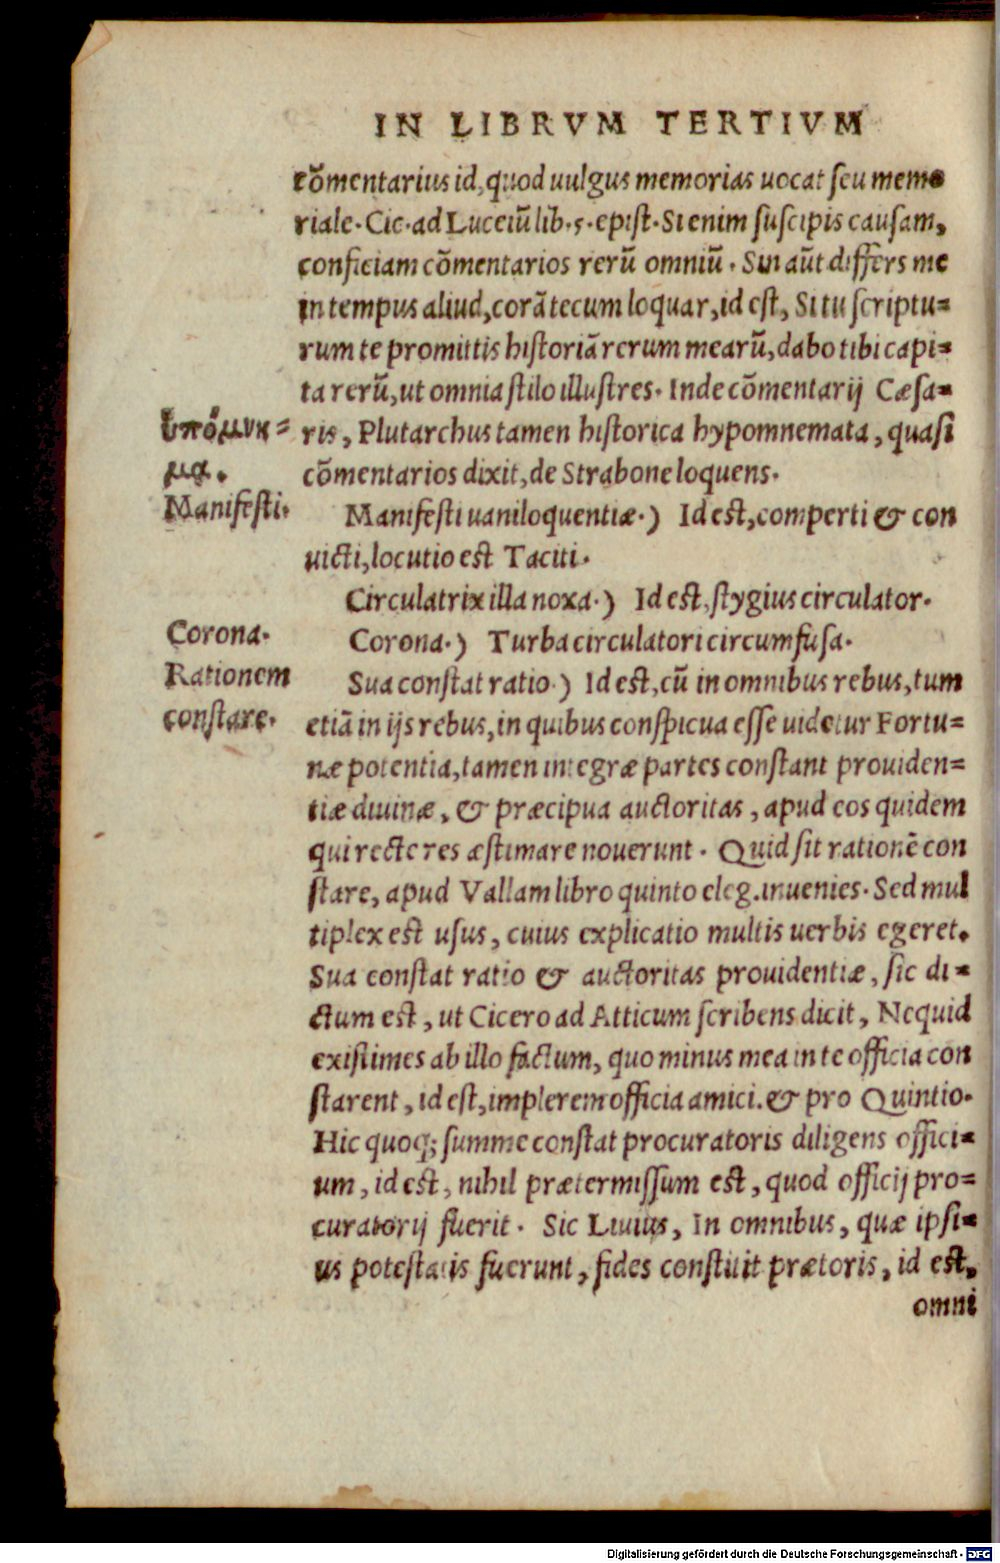 IN LIBRVM TERTIVM
cōmentarius id, quod uulgus memorias uocat seu memo
riale. Cic. ad Luceiū lib. 5. epist. Si enim suscipis causam,
conficiam cōmentarios rerū omniū. Sin aūt differs me
in tempus aliud, corā tecum loquar, id est, Si tu scriptu=
rum te promittis historiā rerum mearū, dabo tibi capi=
ta rerū, ut omnia stilo illustres. Inde cōmentarij Cæsa=
ὑπόμνη=
ris, Plutarchus tamen historica hypomnemata, quasi
μα.
cōmentarios dixit, de Strabone loquens.
Manifesti.
Manifesti uaniloquentiæ.) Id est, comperti & con
uicti, locutio est Taciti.
Circulatrix illa noxa.) Id est, stygius circulator.
Corona.
Corona.) Turba circulatori circumfusa.
Rationem
Sua constat ratio.) Id est, cū in omnibus rebus, tum
constare.
etiā in ijs rebus, in quibus conspicua esse uidetur Fortu=
næ potentia, tamen integræ partes constant prouiden=
tiæ diuinæ, & præcipua auctoritas, apud eos quidem
qui recte res æstimare nouerunt. Quid sit rationē con
stare, apud Vallam libro quinto eleg. inuenies. Sed mul
tiplex est usus, cuius explicatio multis uerbis egeret.
Sua constat ratio & auctoritas prouidentiæ, sic di=
ctum est, ut Cicero ad Atticum scribens dicit, Nequid
existimes ab illo factum, quo minus mea in te officia con
starent, id est, implerem officia amici. & pro Quintio.
Hic quoq; summe constat procuratoris diligens offici=
um, id est, nihil prætermissum est, quod officij pro=
curatorij fuerit. Sic Liuius, In omnibus, quæ ipsi=
us potestatis fuerunt, fides constitit prætoris, id est,
omni
Digitalisierung gefördert durch die Deutsche Forschungsgemeinschaft - DFG